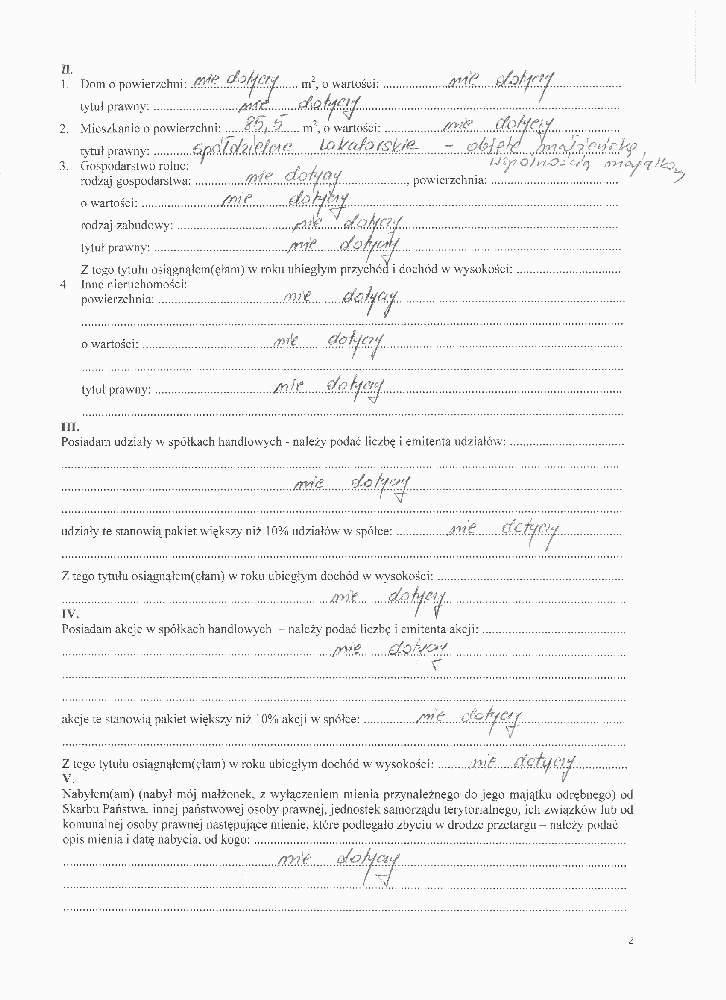 II.
1. Dom o powierzchni: nie dotyczy m², o wartości: nie dotyczy
tytuł prawny: nie dotyczy
2. Mieszkanie o powierzchni: 85,5 m², o wartości: nie dotyczy
tytuł prawny: spółdzielcze lokatorskie - objęte małżeńską
wspólnością majątkową
3. Gospodarstwo rolne:
rodzaj gospodarstwa: nie dotyczy, powierzchnia:
o wartości: nie dotyczy
rodzaj zabudowy: nie dotyczy
tytuł prawny: nie dotyczy
Z tego tytułu osiągnąłem(ęłam) w roku ubiegłym przychód i dochód w wysokości:
4 Inne nieruchomości:
powierzchnia: nie dotyczy
o wartości: nie dotyczy
tytuł prawny: nie dotyczy
III.
Posiadam udziały w spółkach handlowych - należy podać liczbę i emitenta udziałów:
nie dotyczy
udziały te stanowią pakiet większy niż 10% udziałów w spółce: nie dotyczy
Z tego tytułu osiągnąłem(ęłam) w roku ubiegłym dochód w wysokości:
nie dotyczy
IV.
Posiadam akcje w spółkach handlowych – należy podać liczbę i emitenta akcji:
nie dotyczy
akcje te stanowią pakiet większy niż 10% akcji w spółce: nie dotyczy
Z tego tytułu osiągnąłem(ęłam) w roku ubiegłym dochód w wysokości: nie dotyczy
V.
Nabyłem(am) (nabył mój małżonek, z wyłączeniem mienia przynależnego do jego majątku odrębnego) od
Skarbu Państwa, innej państwowej osoby prawnej, jednostek samorządu terytorialnego, ich związków lub od
komunalnej osoby prawnej następujące mienie, które podlegało zbyciu w drodze przetargu – należy podać
opis mienia i datę nabycia, od kogo:
nie dotyczy
2